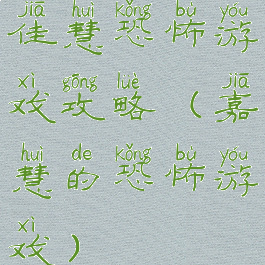 jiā huì kǒng bù yóu
佳慧恐怖游
xì gōng lüè jiā
戏攻略（嘉
huì de kǒng bù yóu
慧的恐怖游
xì
戏）